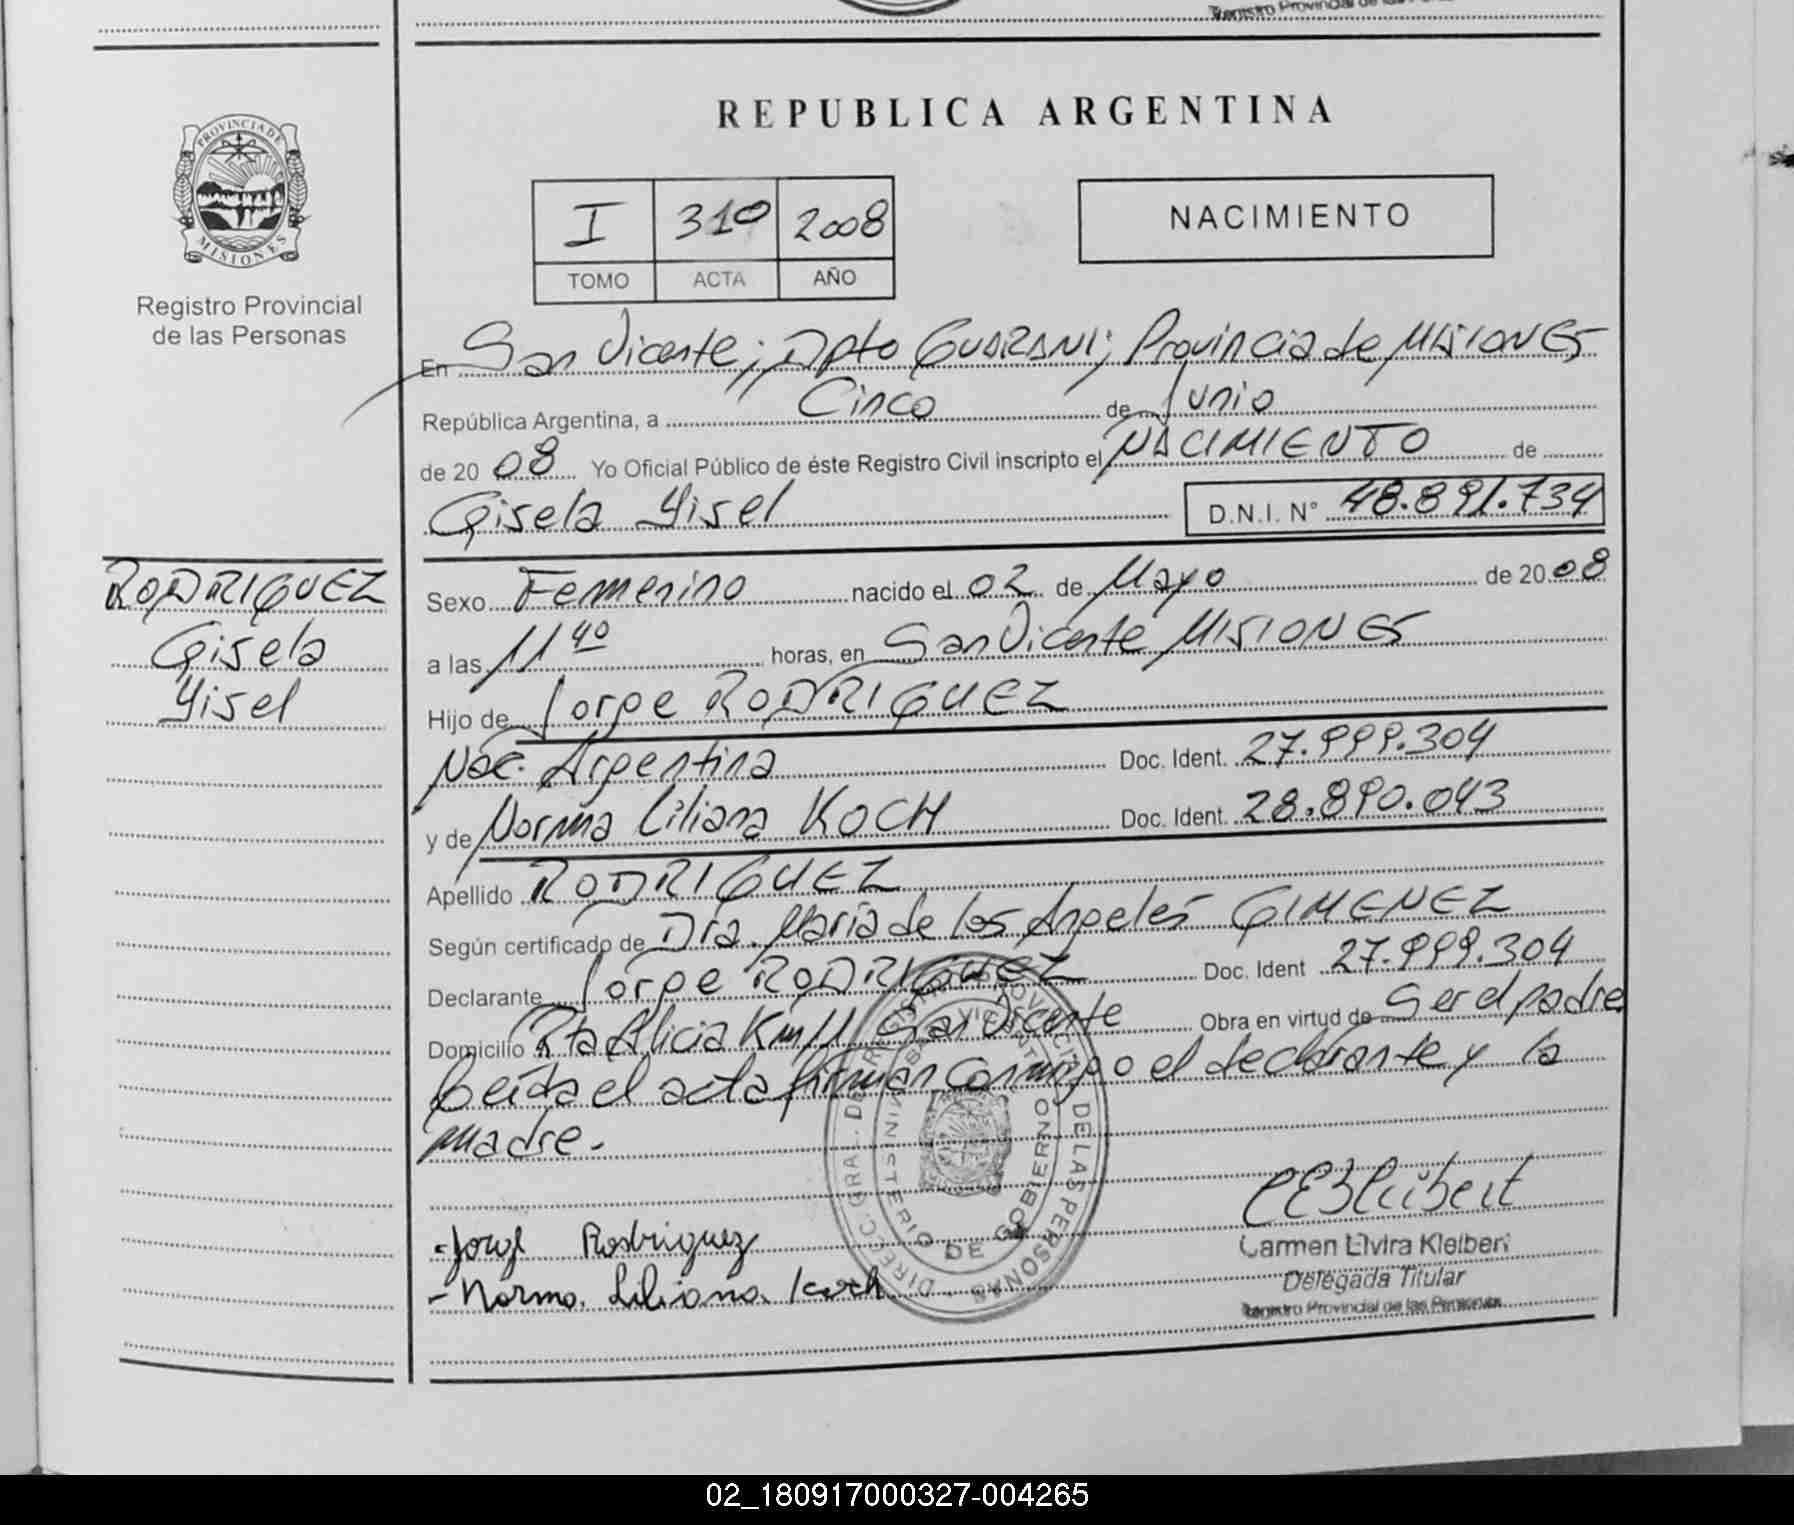 Registro Provincial de las Personas
REPUBLICA ARGENTINA
PROVINCIA DE
MISIONES
Registro Provincial
de las Personas
I 310 2008
TOMO ACTA AÑO
NACIMIENTO
En San Vicente; Dpto GUARANI; Provincia de MISIONES
República Argentina, a Cinco de Junio
de 20 08 Yo Oficial Público de éste Registro Civil inscripto el NACIMIENTO de
Gisela Yisel D.N.I. N° 48.891.734
RODRIGUEZ
Gisela
Yisel
Sexo Femenino nacido el 02 de Mayo de 20 08
a las 11 40 horas, en San Vicente MISIONES
Hijo de Jorge RODRIGUEZ
Nac. Argentina Doc. Ident. 27.999.304
y de Norma Liliana KOCH Doc. Ident. 28.890.043
Apellido RODRIGUEZ
Según certificado de Dra. María de los Angeles GIMENEZ
Declarante Jorge RODRIGUEZ Doc. Ident 27.999.304
Domicilio Rta Alicia Km San Vicente Obra en virtud de Ser el padre
Leída el acta firman conmigo el declarante y la
madre.-
DIRECC. GRAL. DE REGISTRO PROVINCIAL DE LAS PERSONAS
MINISTERIO DE GOBIERNO
-Jorge Rodriguez
-Norma Liliana Koch
Carmen Elvira Kleibert
Delegada Titular
Registro Provincial de las Personas
02_180917000327-004265